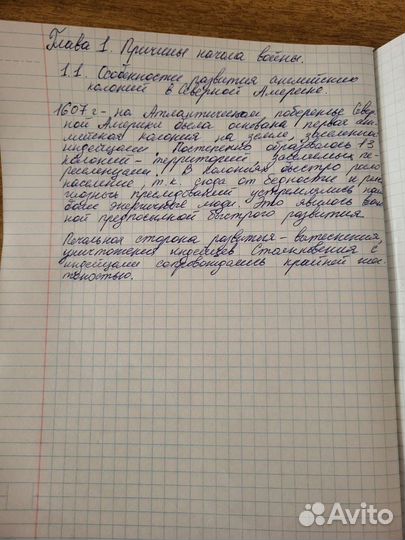 Глава 1. Причины начала войны.
1.1. Особенности развития английских
колоний в Северной Америке.
1607 г - на Атлантическом побережье Севе
рной Америки была основана первая анг
лийская колония на земле, заселенной
индейцами. Постепенно образовалось 13
колоний - территорий заселённых пе
реселенцами. В колониях быстро росло
население, т.к. сюда от бедности и рели
гиозных преследований устремились наи
более энергичные люди. Это явилось важ
ной предпосылкой быстрого развития.
Печальная сторона развития - вытеснения,
уничтожения индейцев. Столкновения с
индейцами сопровождались крайней жес
токостью.
Avito